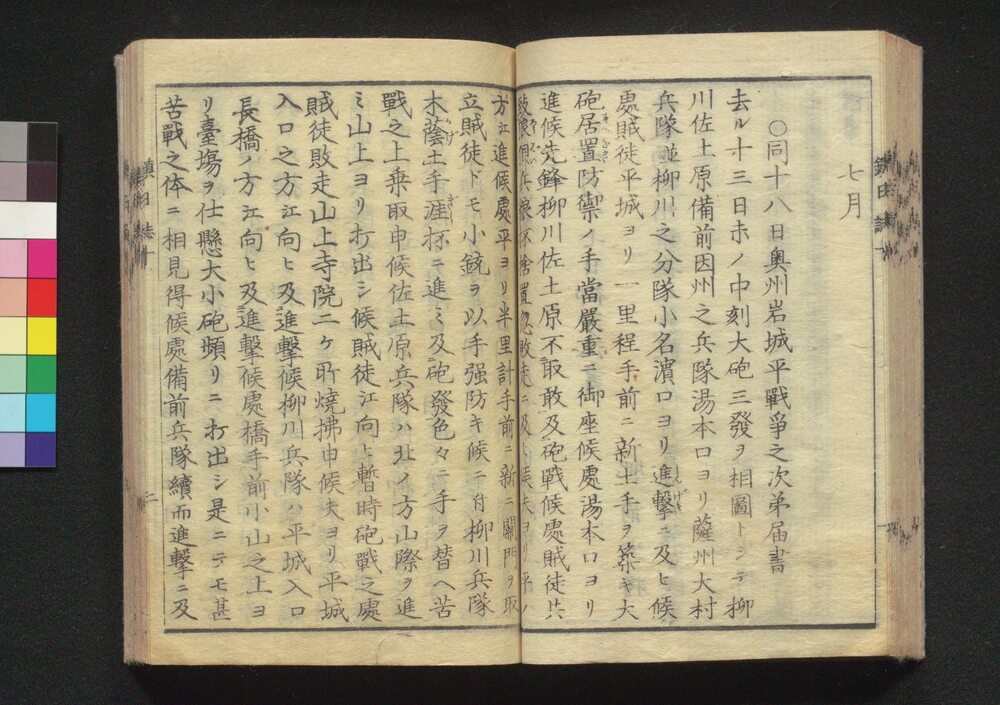 七月
○同十八日奥州岩城平戰爭之次第届書
去ル十三日未ノ中刻大砲三發ヲ相圖トシテ柳
川佐土原備前因州之兵隊湯本口ヨリ薩州大村
兵隊並柳川之分隊小名濱口ヨリ進擊ニ及ヒ候
處賊徒平城ヨリ一里程手前ニ新土手ヲ築キ大
砲居置防禦ノ手當嚴重ニ御座候處湯本口ヨリ
進候先鋒柳川佐土原不取敢及砲戰候處賊徒共
捨置忽敗走ニ及ヒ候夫ヨリ平ノ
方江進候處平ヨリ半里計手前ニ新ニ關門ヲ取
立賊徒ドモ小銃ヲ以手强防キ候ニ付柳川兵隊
木蔭土手涯抔ニ進ミ及砲發色々ニ手ヲ替ヘ苦
戰之上乗取申候佐土原兵隊ハ北ノ方山際ヲ進
ミ山上ヨリ打出シ候賊徒江向ヒ暫時砲戰之處
賊徒敗走山上寺院二ケ所燒拂申候夫ヨリ平城
入口之方江向ヒ及進擊候柳川兵隊ハ平城入口
長橋ノ方江向ヒ及進擊候處橋手前小山之上ヨ
リ臺塲ヲ仕懸大小砲頻リニ打出シ是ニテモ甚
苦戰之体ニ相見得候處備前兵隊續而進擊ニ及
鎮日誌